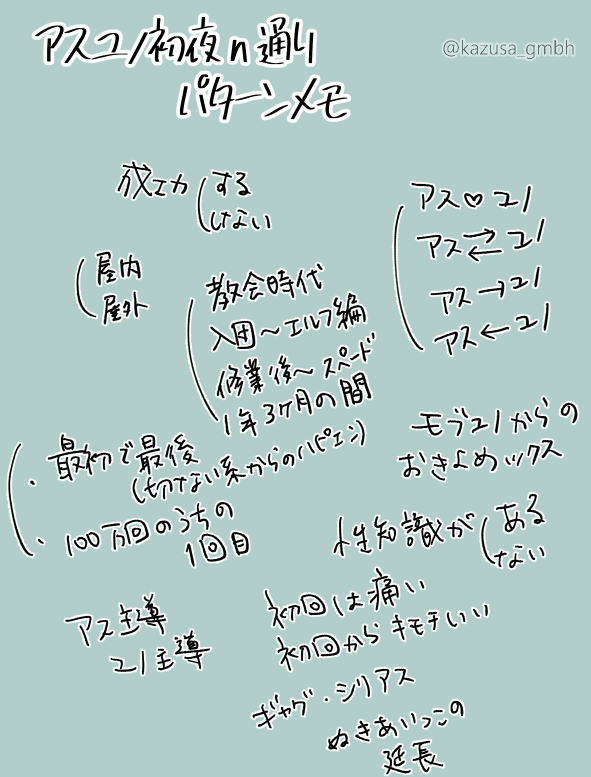 アスユノ初夜n通り
パターンメモ
@kazusa_gmbh
成功 する
しない
アス♡ユノ
アス⇄ユノ
アス→ユノ
アス←ユノ
屋内
屋外
教会時代
入団〜エルフ編
修業後〜スペード
1年3ヶ月の間
モブユノからの
おきよめックス
・最初で最後
(切ない系からのハピエン)
・100万回のうちの
1回目
性知識が ある
ない
アス主導
ユノ主導
初回は痛い
初回からキモチいい
ギャグ・シリアス
ぬきあいっこの
延長